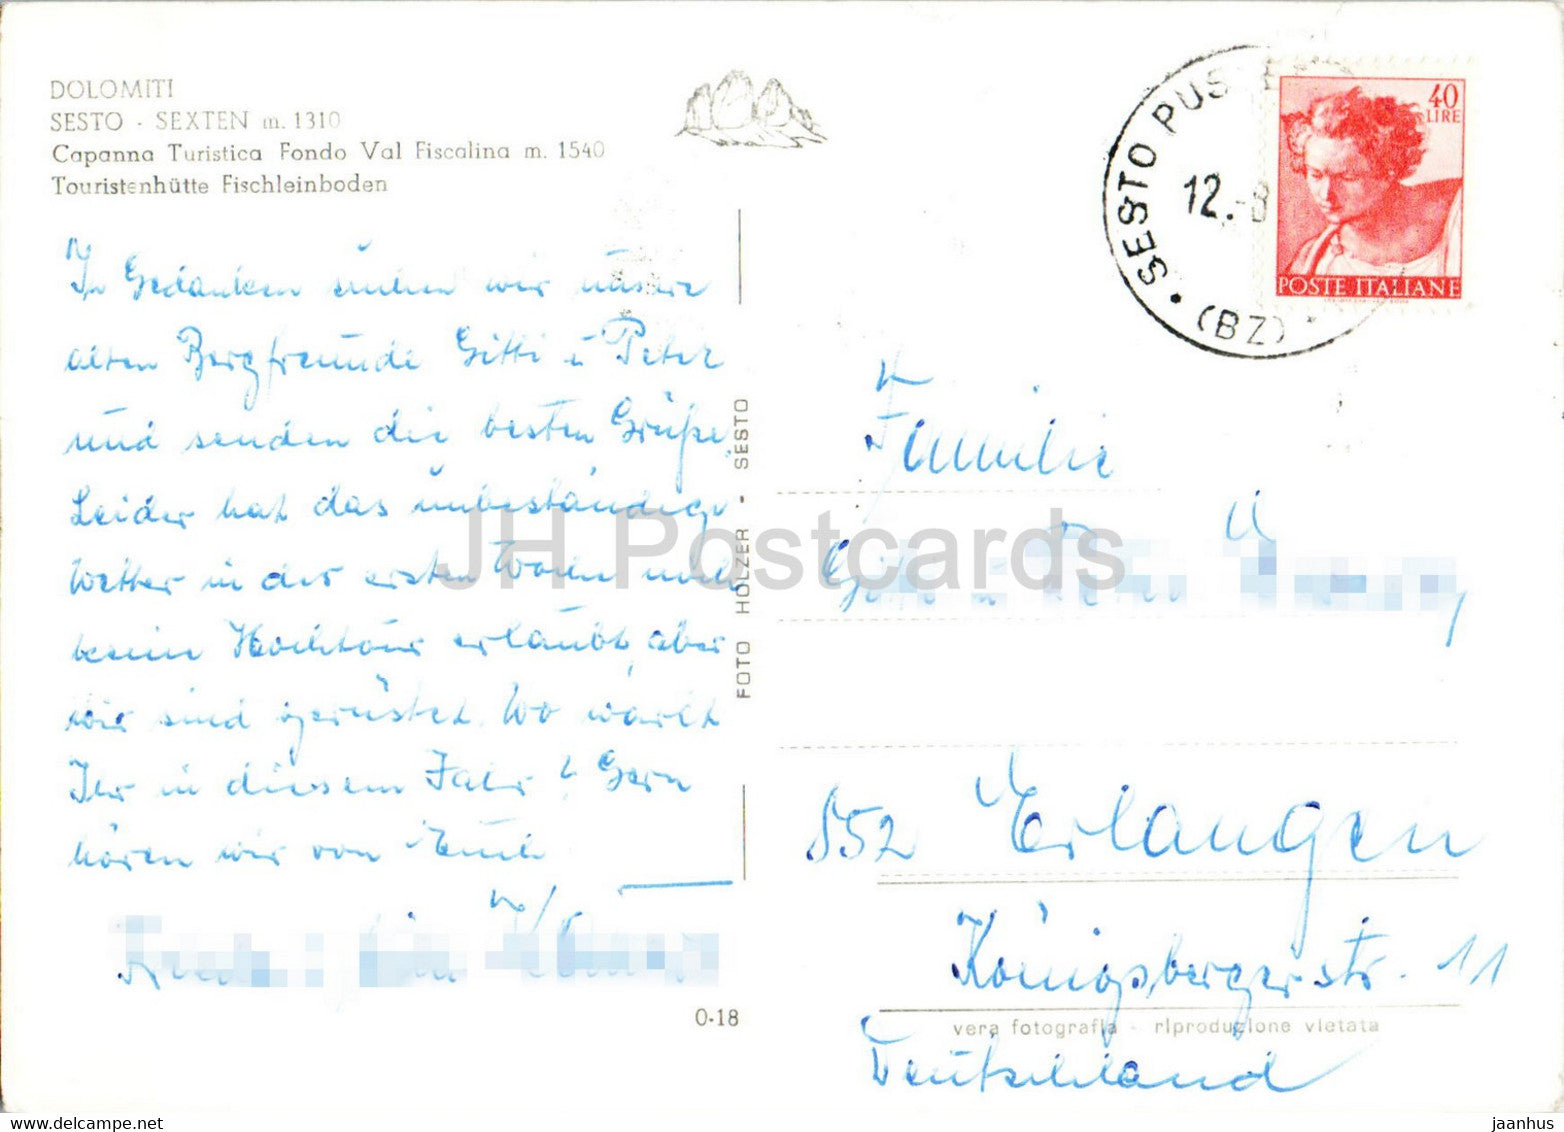 DOLOMITI
SESTO - SEXTEN m. 1310
Capanna Turistica Fondo Val Fiscalina m. 1540
Touristenhütte Fischleinboden
In Gedanken suchen wir unsere
alten Bergfreunde Gitti u Peter
und senden die besten Grüße.
Leider hat das unbeständige
Wetter in der ersten Woche noch
keine Hochtour erlaubt, aber
wir sind gerüstet. Wo wart
Ihr in diesem Jahr? Gern
hören wir von Euch
0-18
FOTO HOLZER - SESTO
SESTO PUS
12.-8
(BZ)
40
LIRE
POSTE ITALIANE
Familie
Gitti u
852 Erlangen
Königsbergerstr. 11
vera fotografia - riproduzione vietata
Deutschland
JH Postcards
jaanhus @ www.delcampe.net